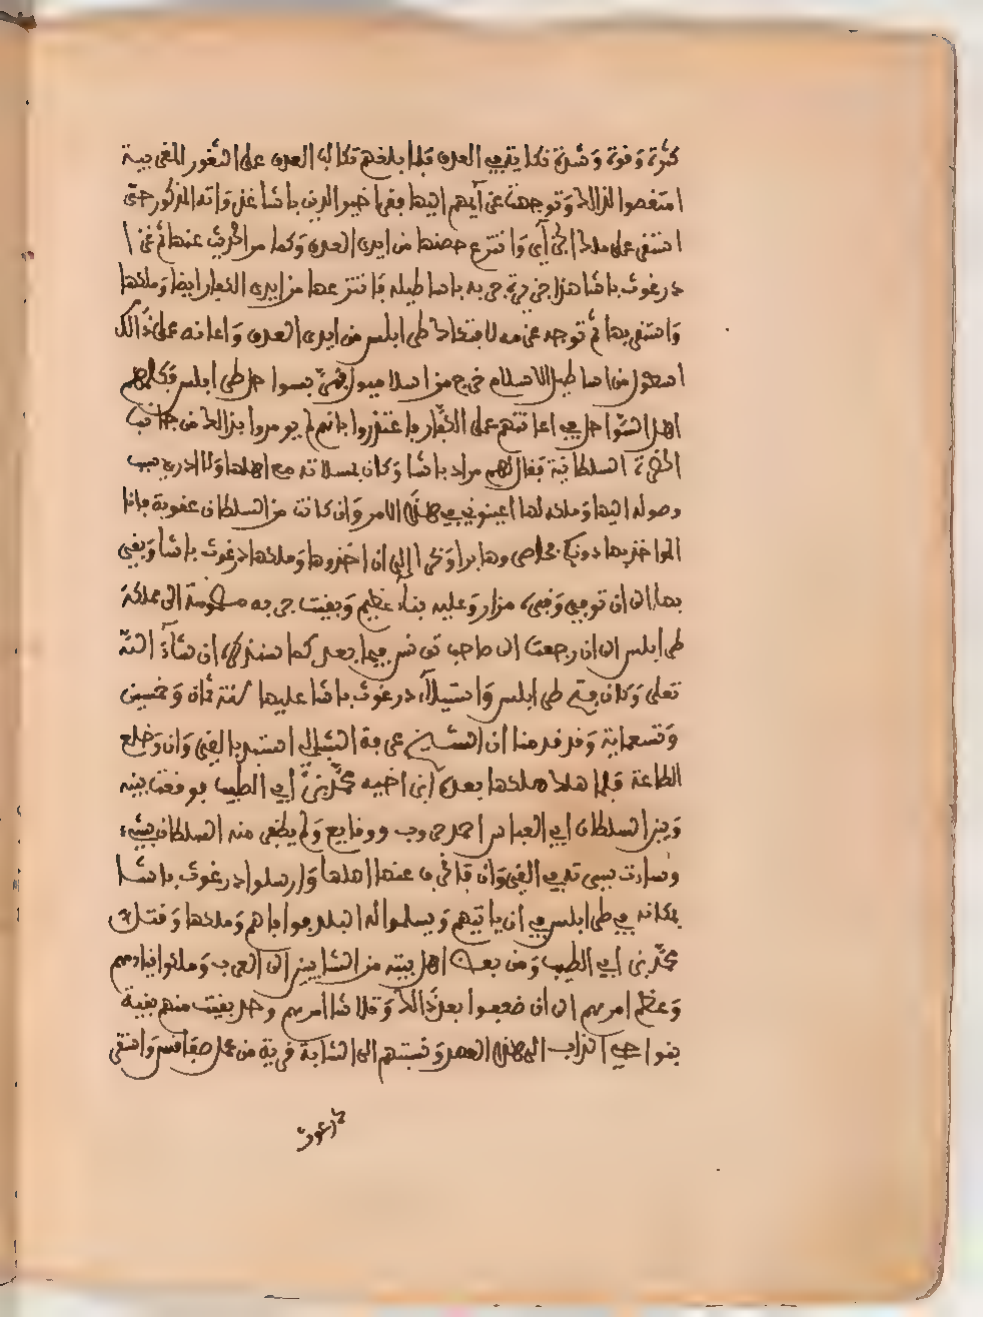 كثرة وقوة وشدة نكاية في العدو فلما بلغهم تكالب العدو على الثغور المغربية
امتعضوا لذالك وتوجهت عزايمهم اليها فغزا خير الدين باشا غزواته المذكور حتى
استقر على ملك الجزاير وانتزع حصنها من ايدي العدو وكما مر الحديث عنها ثم غزا
درغوث باشا هذا جزيرة جربة باساطيله فانتزعها من ايدي الكفار ايضا وملكها
واستقر بها ثم توجه عزمه لافتكاك طرابلس من ايدي العدو واعانه على ذالك
اسطول من اساطيل الاسلام خرج من اسلامبول فمر بسواحل طرابلس فكلمهم
اهل السواحل في اعانتهم على الكفار فاعتذروا بانهم لم يومروا بذالك من جانب
الحضرة السلطانية فقال لهم مراد باشا وكان بمسلاتة مع اهلها ولا ادري سبب
وصوله اليها وملكه لها اعينوني في هذا الامر وان كانت من السلطان عقوبة فانا
الماخوذ بها دونكم فحاصروها برا وبحرا الى ان اخذوها وملكها درغوث باشا وبقي
بها الى ان توفي وقبره مزار وعليه بناء عظيم وبقيت جربة مضمومة الى مملكة
طرابلس الى ان رجعت الى صاحب تونس فيما بعد كما سنذكره ان شاء الله
تعلى وكان فتح طرابلس واستيلاء درغوث باشا عليها سنة ثمان وخمسين
وتسعماية وقد قدمنا ان الشيخ عرفة الشابي استبد بالقيروان وخلع
الطاعة فلما هلك ملكها بعده ابن اخيه محمد بن ابي الطيب فوقعت بينه
وبين السلطان ابي العباس احمد حروب ووقايع ولم يظفر منه السلطان بشيء
وساءت سيرته في القيروان فانحرف عنها اهلها وارسلوا درغوث باشا
بمكانه في طرابلس في ان ياتيهم ويسلموا له البلد فوافاهم وملكها وقتل
محمد بن ابي الطيب وفر من بعده اهل بيته من الشابيين الى العرب وملكوا قيادهم
وعظم امرهم الى ان ضعفوا بعد ذالك وتلاشا امرهم وقد بقيت منهم بقية
بنواحي الزاب الى هذا العصر ونسبتهم الى الشابة قرية من عمل صفاقس واستقر
درغوث